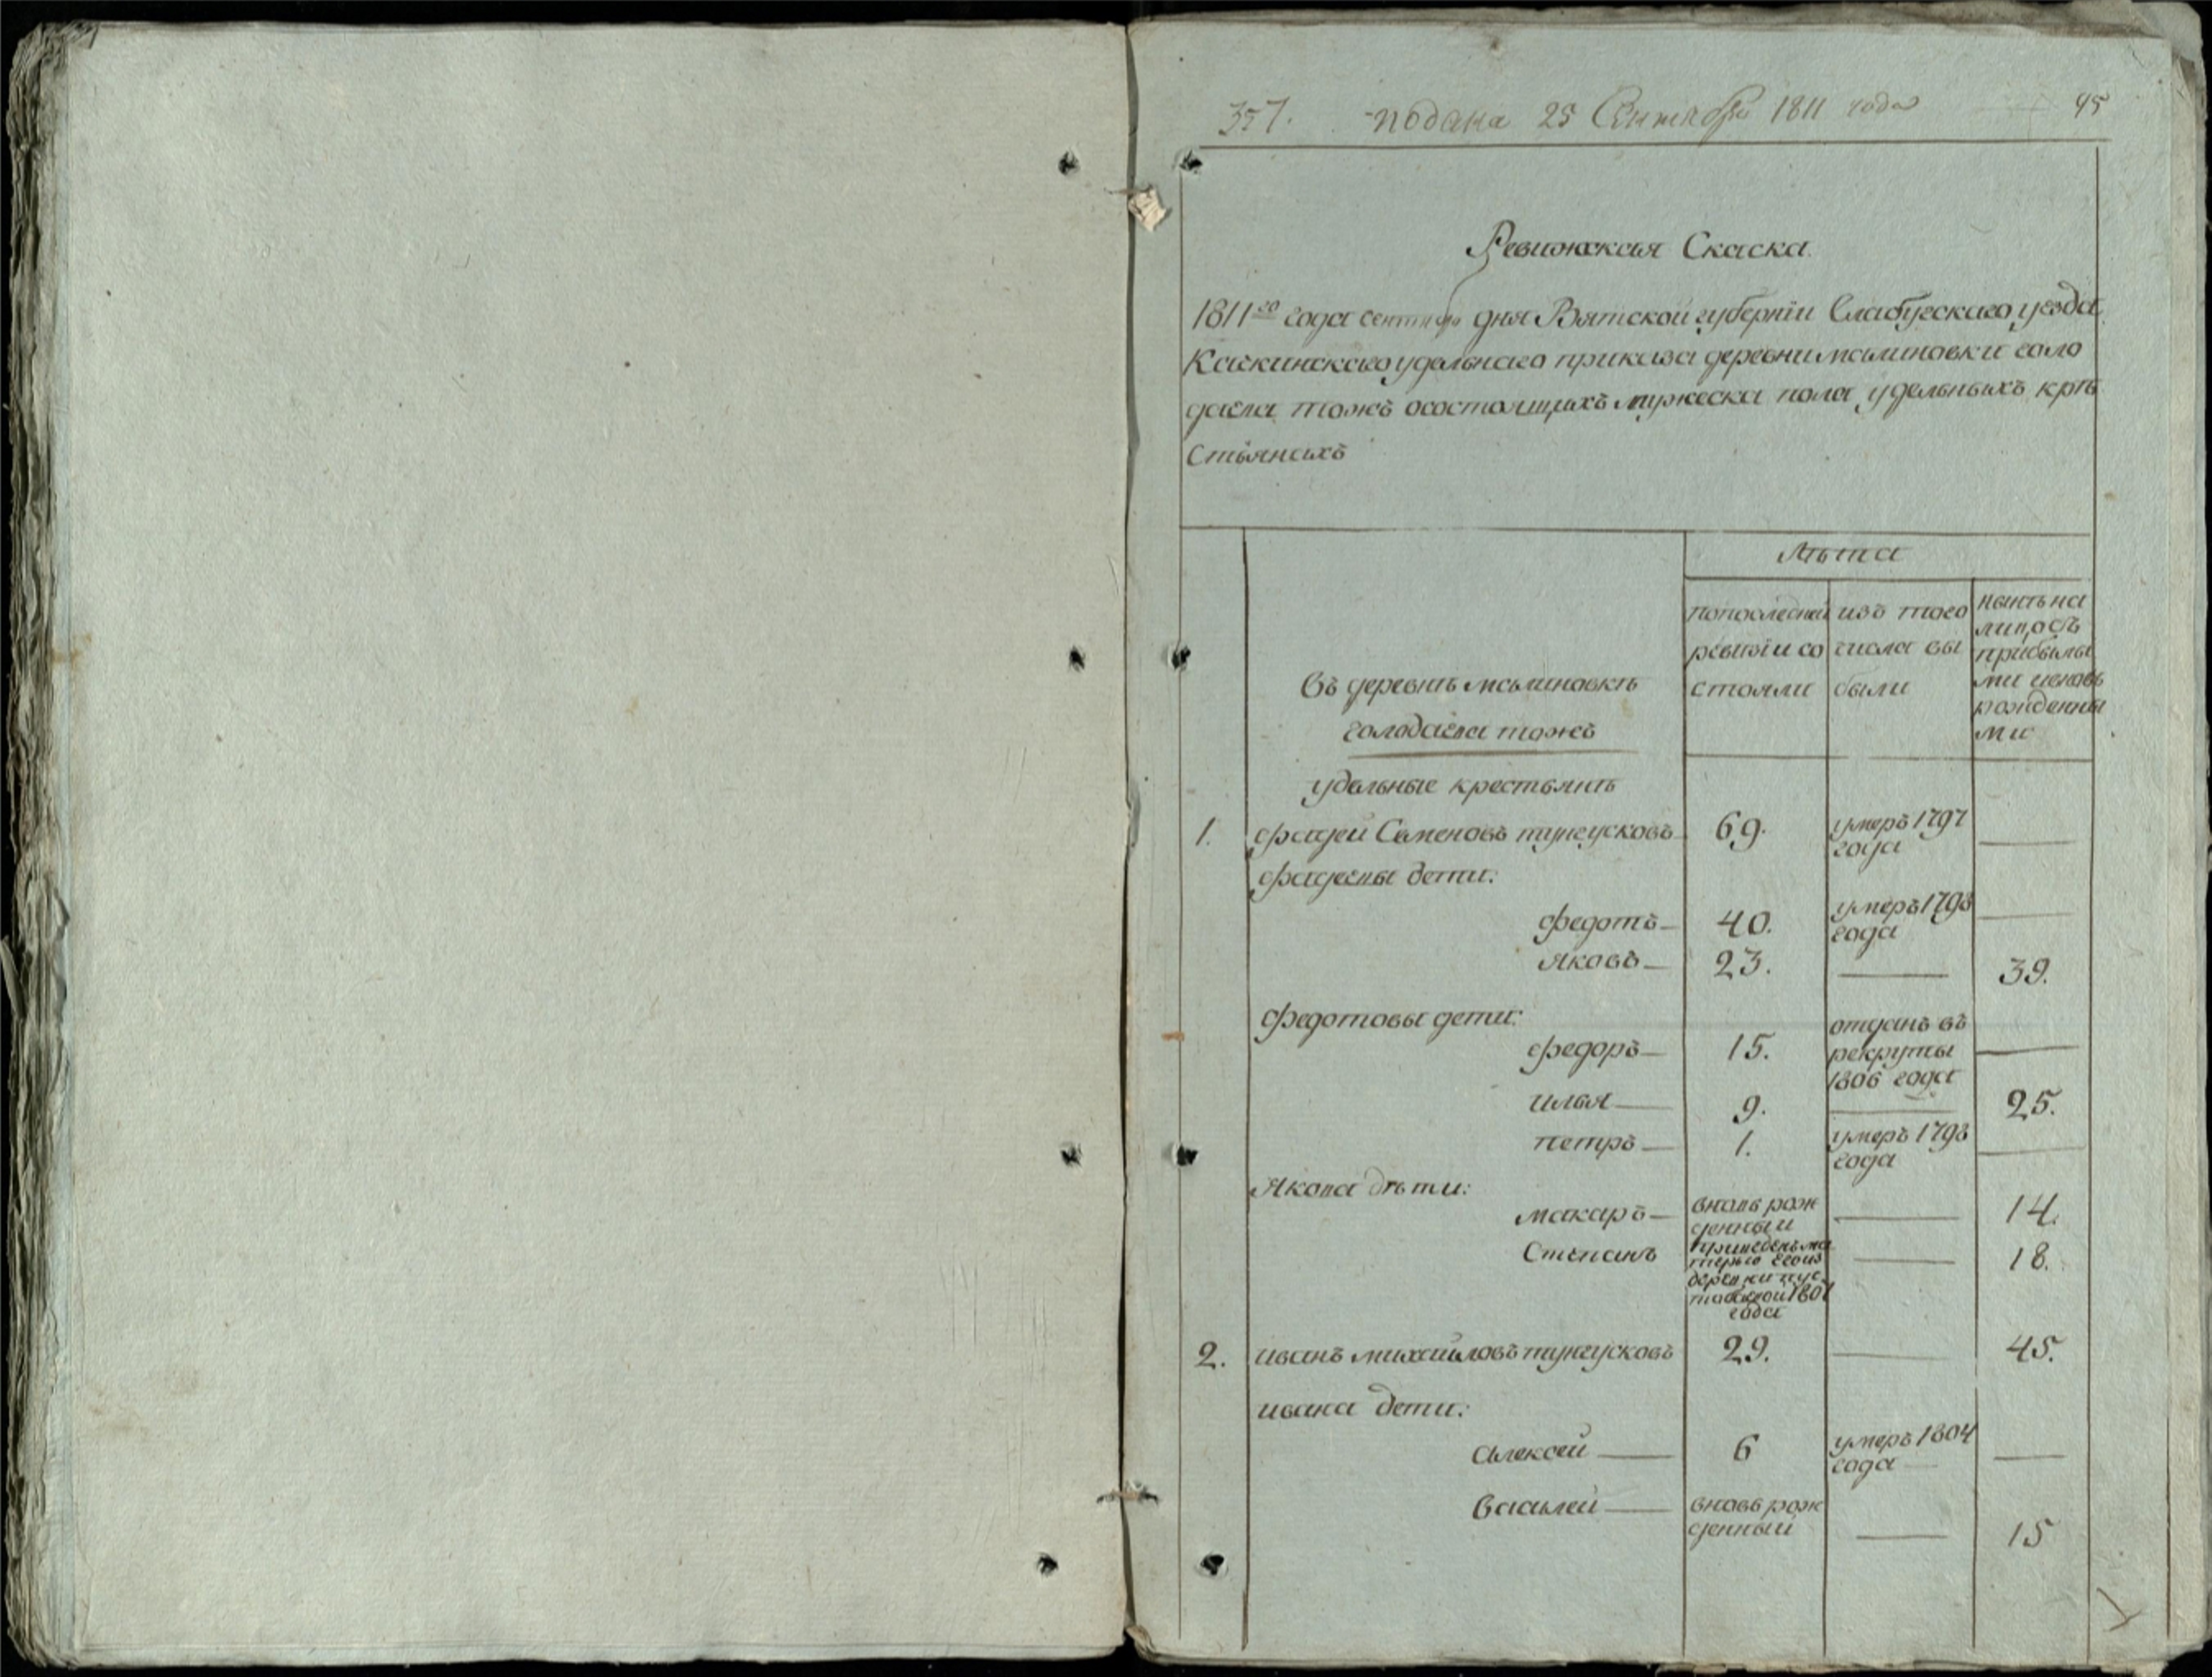 357. подана 25 Сентября 1811 года 45
Ревижская Скаска
1811го года сентября дня Вятской губернїи Елабугскаго уезда
Качкинскаго удельнаго приказа деревни малиновки голо
даева тожъ осостоящихъ мужеска пола удельныхъ крѣ
стьянахъ
Лѣта
въ деревнѣ малиновкѣ
голодаева тожъ
попоследней
ревизїи со
стояли
изъ того
числа вы
были
нынѣ на
лицо съ
прибылы
ми и новъ
рожденны
ми
удельные крестьянѣ
1. фадей Семеновъ тунгусковъ 69. умеръ 1797
года
фадеевы дети:
федотъ 40. умеръ 1798
года
яковъ 23. 39.
федотовы дети:
федоръ 15. отданъ въ
рекруты
1806 года
илья 9. 25.
петръ 1. умеръ 1798
года
Якова дѣти:
макаръ вновь рож
денный 14.
Степанъ приведенъ ма
терью его из
деревни пус
1801
года 18.
2. иванъ михайловъ тунгусковъ 29. 45.
ивана дети:
алексей 6 умеръ 1804
года
василей вновь рож
денный 15